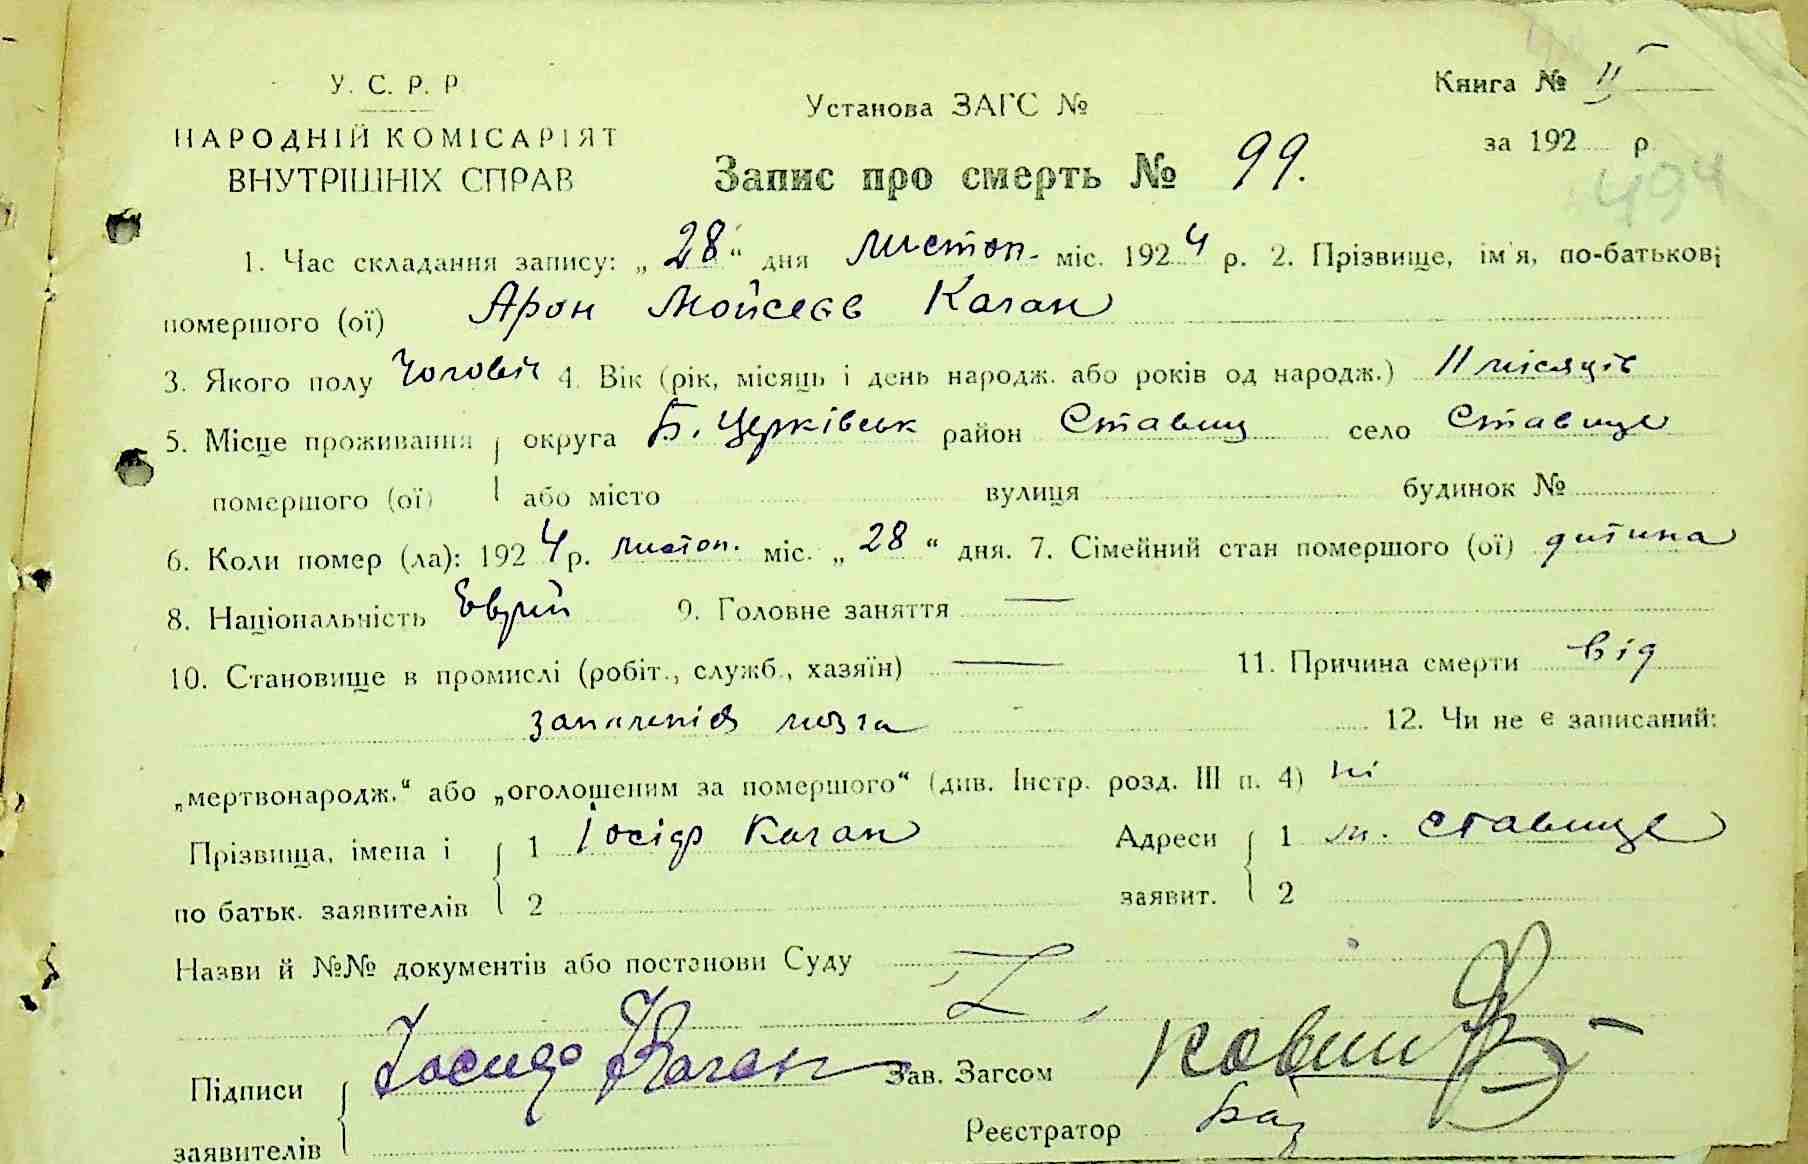 У. С. Р. Р
НАРОДНІЙ КОМІСАРІЯТ
ВНУТРІШНІХ СПРАВ
Установа ЗАГС №
Книга № II
за 192 р.
Запис про смерть № 99.
494
1. Час складання запису: „28“ дня листоп. міс. 1924 р. 2. Прізвище, ім'я, по-батькові
помершого (ої) Арон Мойсеєв Каган
3. Якого полу чоловіч 4. Вік (рік, місяць і день народж. або років од народж.) 11 місяців
5. Місце проживання округа Б. Церківськ район Ставищ село Ставище
помершого (ої) або місто вулиця будинок №
6. Коли помер (ла): 1924 р. листоп. міс. „28“ дня. 7. Сімейний стан помершого (ої) дитина
8. Національність Еврей 9. Головне заняття —
10. Становище в промислі (робіт., служб., хазяїн) — 11. Причина смерти від
запаленія мозга 12. Чи не є записаний:
„мертвонародж.“ або „оголошеним за помершого“ (див. Інстр. розд. III п. 4) ні
Прізвища, імена і 1 Іосіф Каган Адреси 1 м. Ставище
по батьк. заявителів 2 заявит. 2
Назви й №№ документів або постанови Суду
Підписи Иосиф Каган Зав. Загсом
заявителів Реєстратор